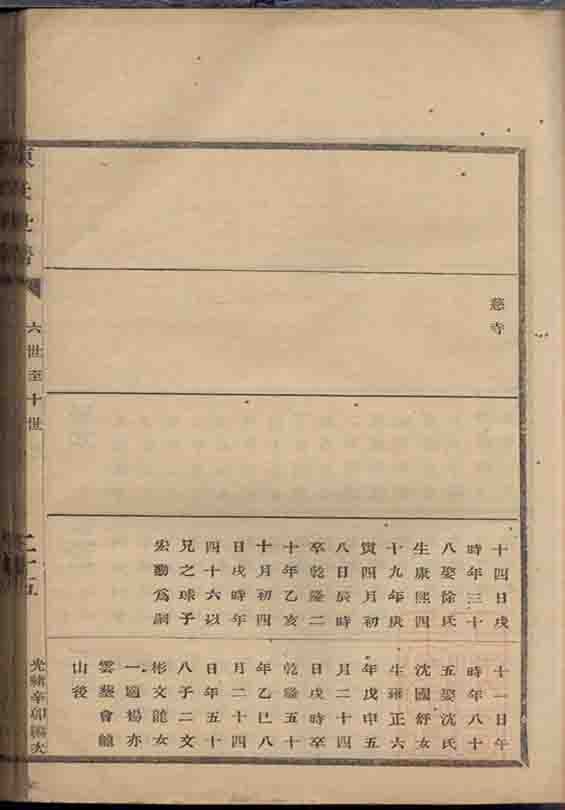 慈寺
十四日戌
時年三十
八娶徐氏
生康熙四
十九年庚
寅四月初
八日辰時
卒乾隆二
十年乙亥
十月初四
日戌時年
四十六以
兄之球子
宏勳為嗣
十一日午
時年八十
五娶沈氏
沈國舒女
生雍正六
年戊申五
月二十四
日戌時卒
乾隆五十
年乙巳八
月二十四
日年五十
八子二文
彬文龍女
一適楊亦
雲葬會龍
山後
氏世譜
六世至十世
光緒辛卯編次